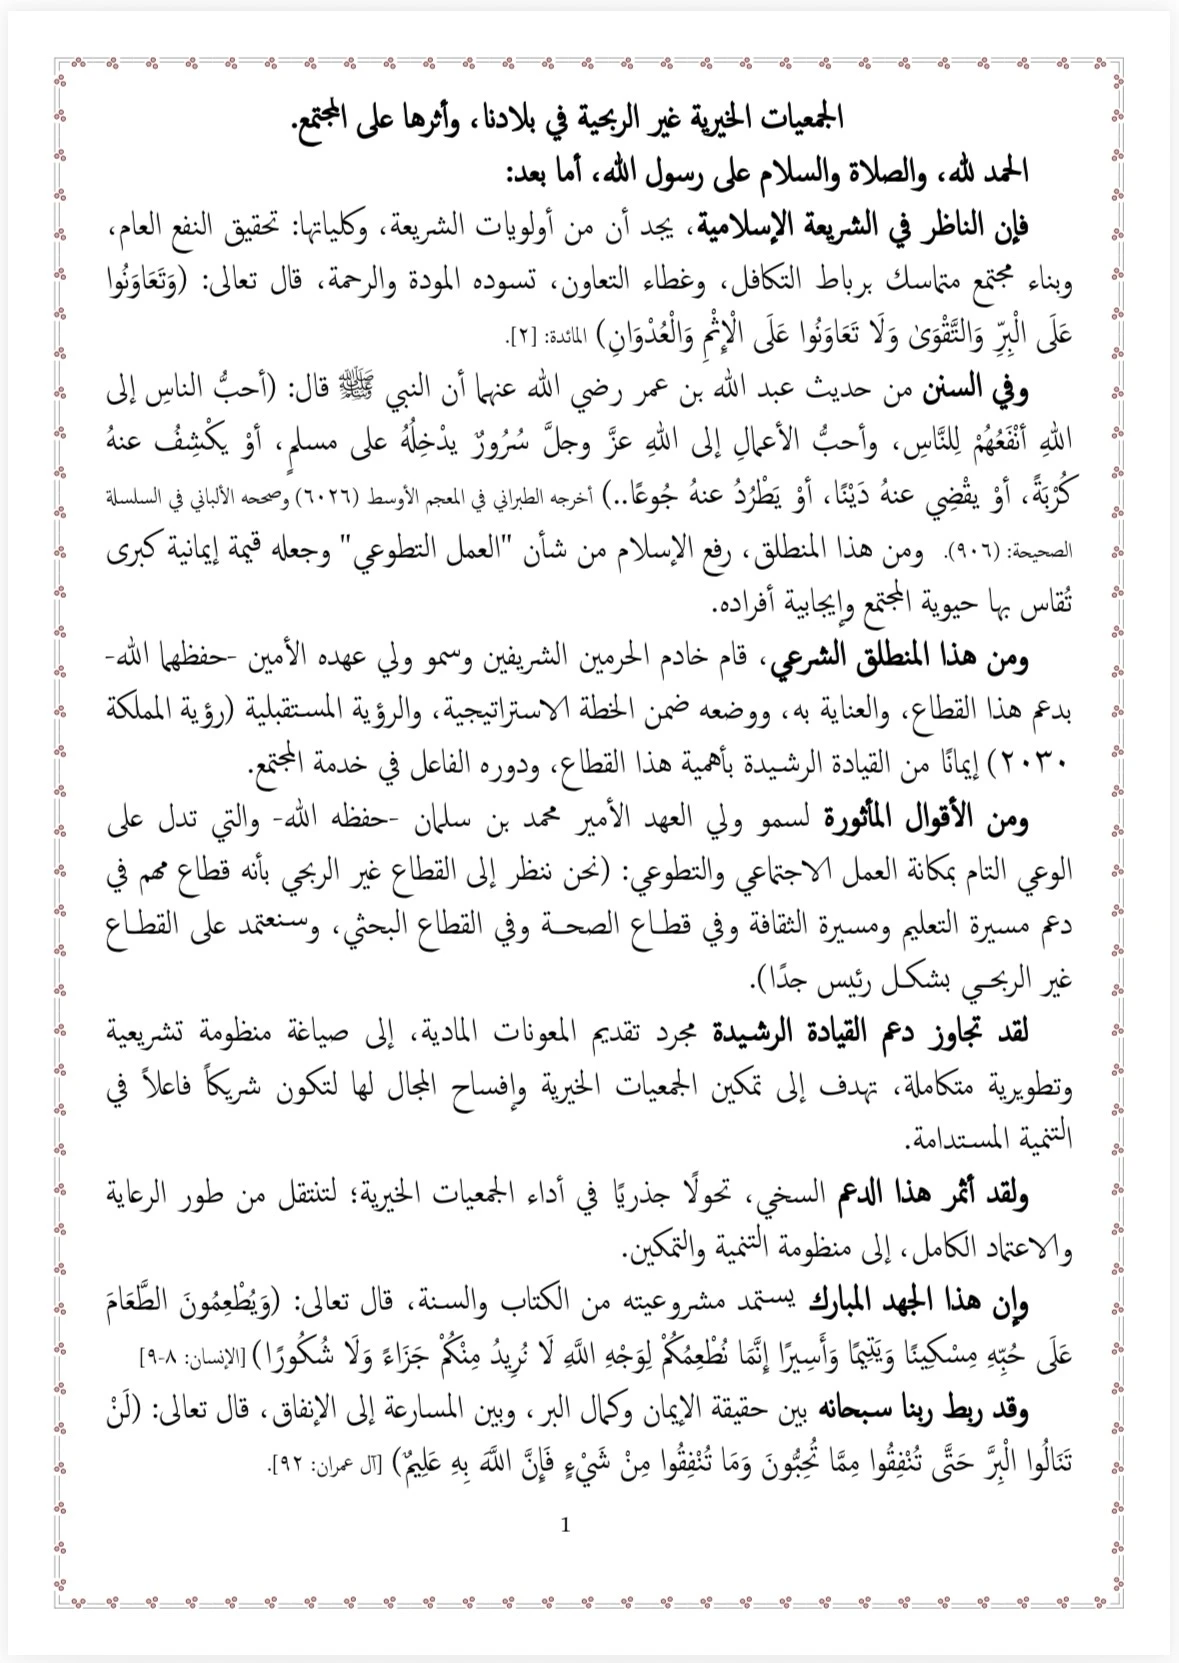 الجمعيات الخيرية غير الربحية في بلادنا، وأثرها على المجتمع.
الحمد لله، والصلاة والسلام على رسول الله، أما بعد:
فإن الناظر في الشريعة الإسلامية، يجد أن من أولويات الشريعة، وكلياتها: تحقيق النفع العام،
وبناء مجتمع متماسك برباط التكافل، وغطاء التعاون، تسوده المودة والرحمة، قال تعالى: (وَتَعَاوَنُوا
عَلَى الْبِرِّ وَالتَّقْوَىٰ وَلَا تَعَاوَنُوا عَلَى الْإِثْمِ وَالْعُدْوَانِ) المائدة: [٢].
وفي السنن من حديث عبد الله بن عمر رضي الله عنهما أن النبي ﷺ قال: (أحبُّ الناسِ إلى
اللهِ أنْفَعُهُمْ لِلنَّاسِ، وأحبُّ الأعمالِ إلى اللهِ عزَّ وجلَّ سُرُورٌ يدْخِلُهُ على مسلمٍ، أوْ يكْشِفُ عنهُ
كُرْبَةً، أوْ يقْضِي عنهُ دَيْنًا، أوْ يَطْرُدُ عنهُ جُوعًا..) أخرجه الطبراني في المعجم الأوسط (٦٠٢٦) وصححه الألباني في السلسلة
الصحيحة: (٩٠٦). ومن هذا المنطلق، رفع الإسلام من شأن "العمل التطوعي" وجعله قيمة إيمانية كبرى
تُقاس بها حيوية المجتمع وإيجابية أفراده.
ومن هذا المنطلق الشرعي، قام خادم الحرمين الشريفين وسمو ولي عهده الأمين -حفظهما الله-
بدعم هذا القطاع، والعناية به، ووضعه ضمن الخطة الاستراتيجية، والرؤية المستقبلية (رؤية المملكة
٢٠٣٠) إيمانًا من القيادة الرشيدة بأهمية هذا القطاع، ودوره الفاعل في خدمة المجتمع.
ومن الأقوال المأثورة لسمو ولي العهد الأمير محمد بن سلمان -حفظه الله- والتي تدل على
الوعي التام بمكانة العمل الاجتماعي والتطوعي: (نحن ننظر إلى القطاع غير الربحي بأنه قطاع مهم في
دعم مسيرة التعليم ومسيرة الثقافة وفي قطـاع الصحـة وفي القطاع البحثي، وسـنعتمد على القطـاع
غير الربحـي بشـكـل رئيس جدًا).
لقد تجاوز دعم القيادة الرشيدة مجرد تقديم المعونات المادية، إلى صياغة منظومة تشريعية
وتطويرية متكاملة، تهدف إلى تمكين الجمعيات الخيرية وإفساح المجال لها لتكون شريكاً فاعلاً في
التنمية المستدامة.
ولقد أثمر هذا الدعم السخي، تحولًا جذريًا في أداء الجمعيات الخيرية؛ لتنتقل من طور الرعاية
والاعتماد الكامل، إلى منظومة التنمية والتمكين.
وإن هذا الجهد المبارك يستمد مشروعيته من الكتاب والسنة، قال تعالى: (وَيُطْعِمُونَ الطَّعَامَ
عَلَى حُبِّهِ مِسْكِينًا وَيَتِيمًا وَأَسِيرًا إِنَّمَا نُطْعِمُكُمْ لِوَجْهِ اللَّهِ لَا نُرِيدُ مِنْكُمْ جَزَاءً وَلَا شُكُورًا) [الإنسان: ٨-٩]
وقد ربط ربنا سبحانه بين حقيقة الإيمان وكمال البر، وبين المسارعة إلى الإنفاق، قال تعالى: (لَنْ
تَنَالُوا الْبِرَّ حَتَّى تُنْفِقُوا مِمَّا تُحِبُّونَ وَمَا تُنْفِقُوا مِنْ شَيْءٍ فَإِنَّ اللَّهَ بِهِ عَلِيمٌ) [آل عمران: ٩٢].
1